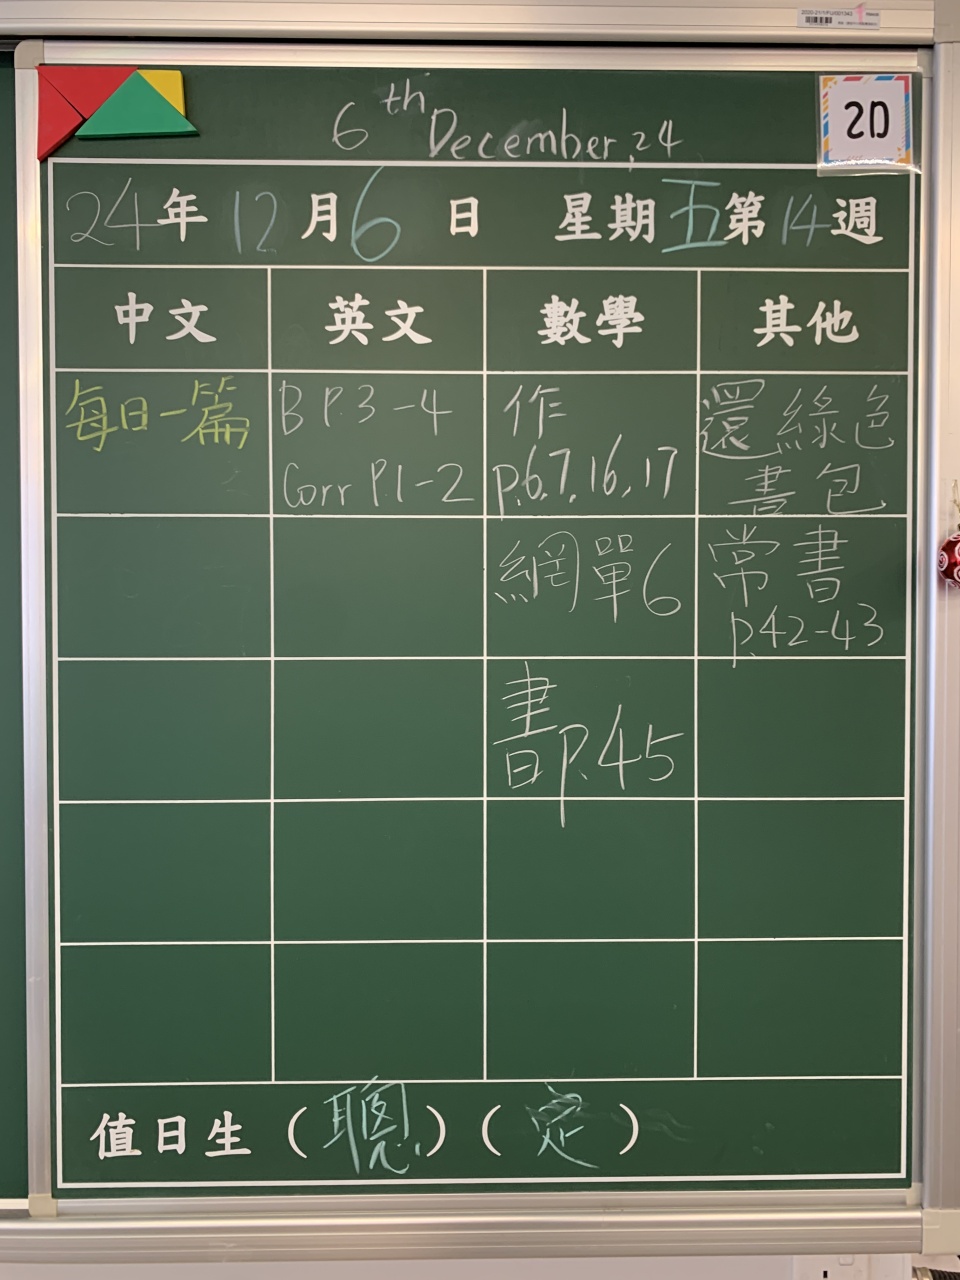 6th December, 24
2D
24年 12月 6日 星期五第14週
中文 英文 數學 其他
每日一篇
B P.3-4
Corr P.1-2
作
p.6,7,16,17
還綠色
書包
網單6
常書
p.42-43
書P.45
值日生（聰）（定）